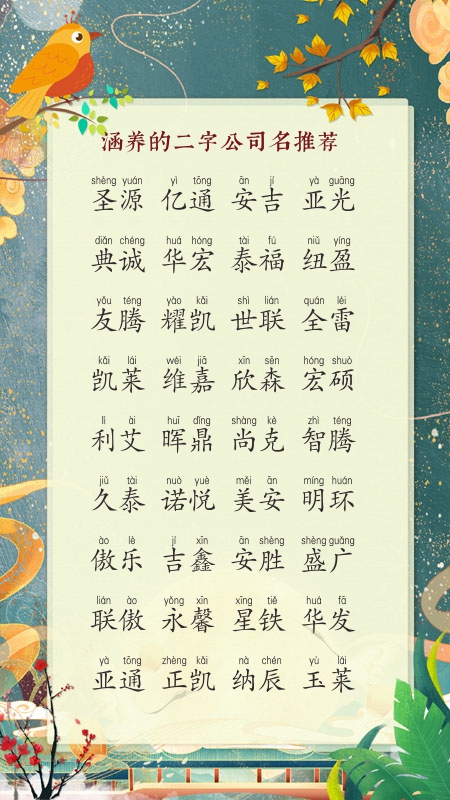 涵养的二字公司名推荐
shèng yuán yì tōng ān jí yà guāng
圣源 亿通 安吉 亚光
diǎn chéng huá hóng tài fú niǔ yíng
典诚 华宏 泰福 纽盈
yǒu téng yào kǎi shì lián quán léi
友腾 耀凯 世联 全雷
kǎi lái wéi jiā xīn sēn hóng shuò
凯莱 维嘉 欣森 宏硕
lì ài huī dǐng shàng kè zhì téng
利艾 晖鼎 尚克 智腾
jiǔ tài nuò yuè měi ān míng huán
久泰 诺悦 美安 明环
ào lè jí xīn ān shèng shèng guǎng
傲乐 吉鑫 安胜 盛广
lián ào yǒng xīn xīng tiě huá fā
联傲 永馨 星铁 华发
yà tōng zhèng kǎi nà chén yù lái
亚通 正凯 纳辰 玉莱